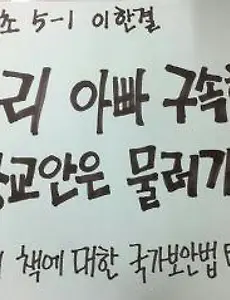 초 5-1 이한결
리 아빠 구속
교안은 물러가
책에 대한 국가보안법